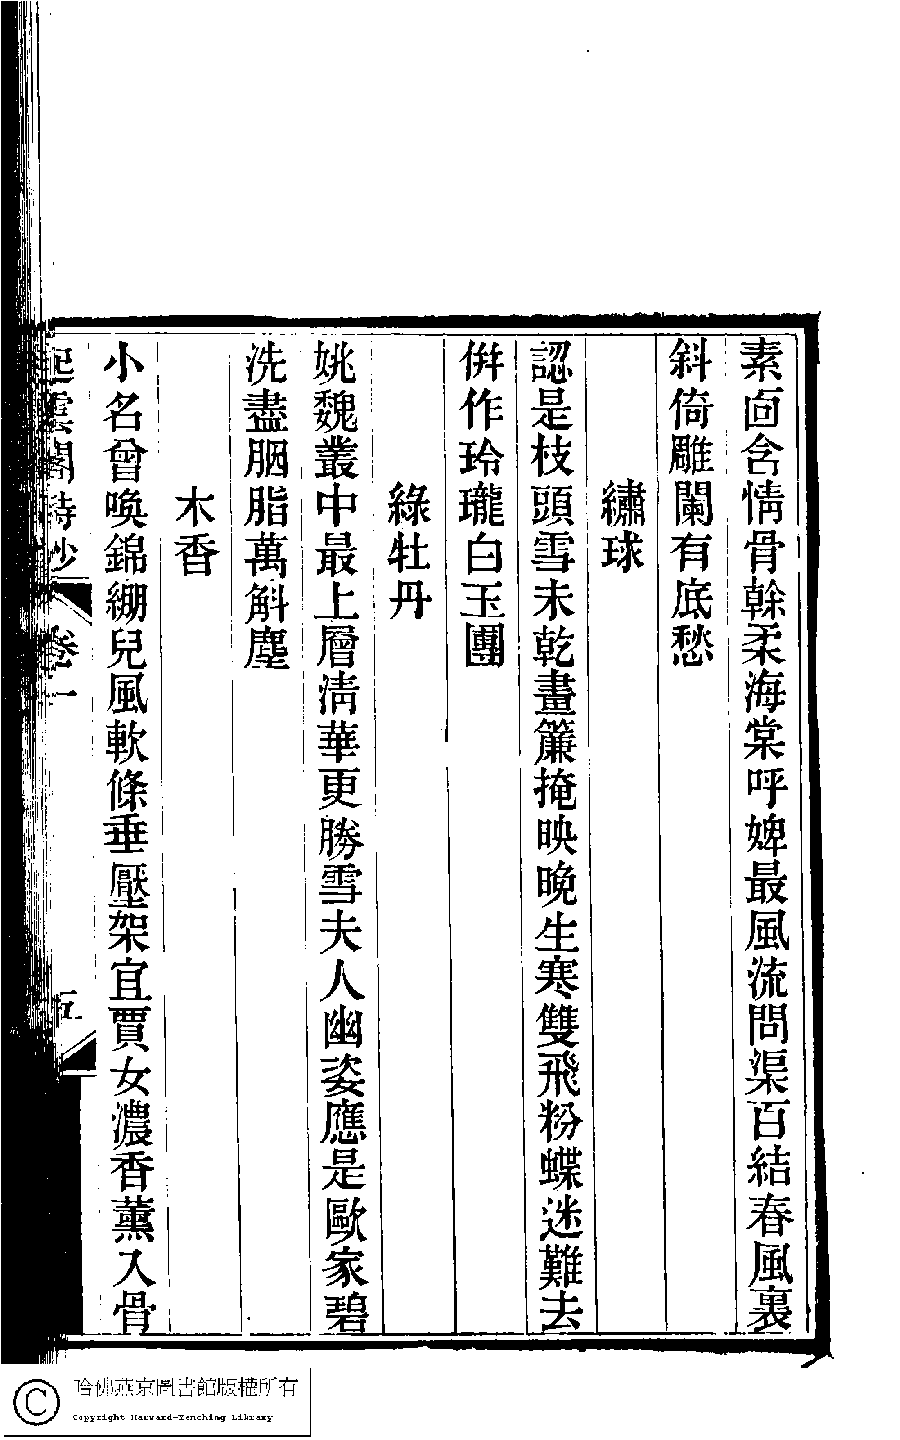 素面含情骨幹柔海棠呼婢最風流問渠百結春風裏
斜倚雕闌有底愁
繡球
認是枝頭雪未乾畫簾掩映晚生寒雙飛粉蝶迷難去
倂作玲瓏白玉團
綠牡丹
姚魏叢中最上層淸華更勝雪夫人幽姿應是歐家碧
洗盡胭脂萬斛塵
木香
小名曾喚錦綳兒風軟條垂壓架宜賈女濃香薰入骨
起雲閣詩鈔 卷一 五
哈佛燕京圖書館版權所有
Copyright Harvard-Yenching Library